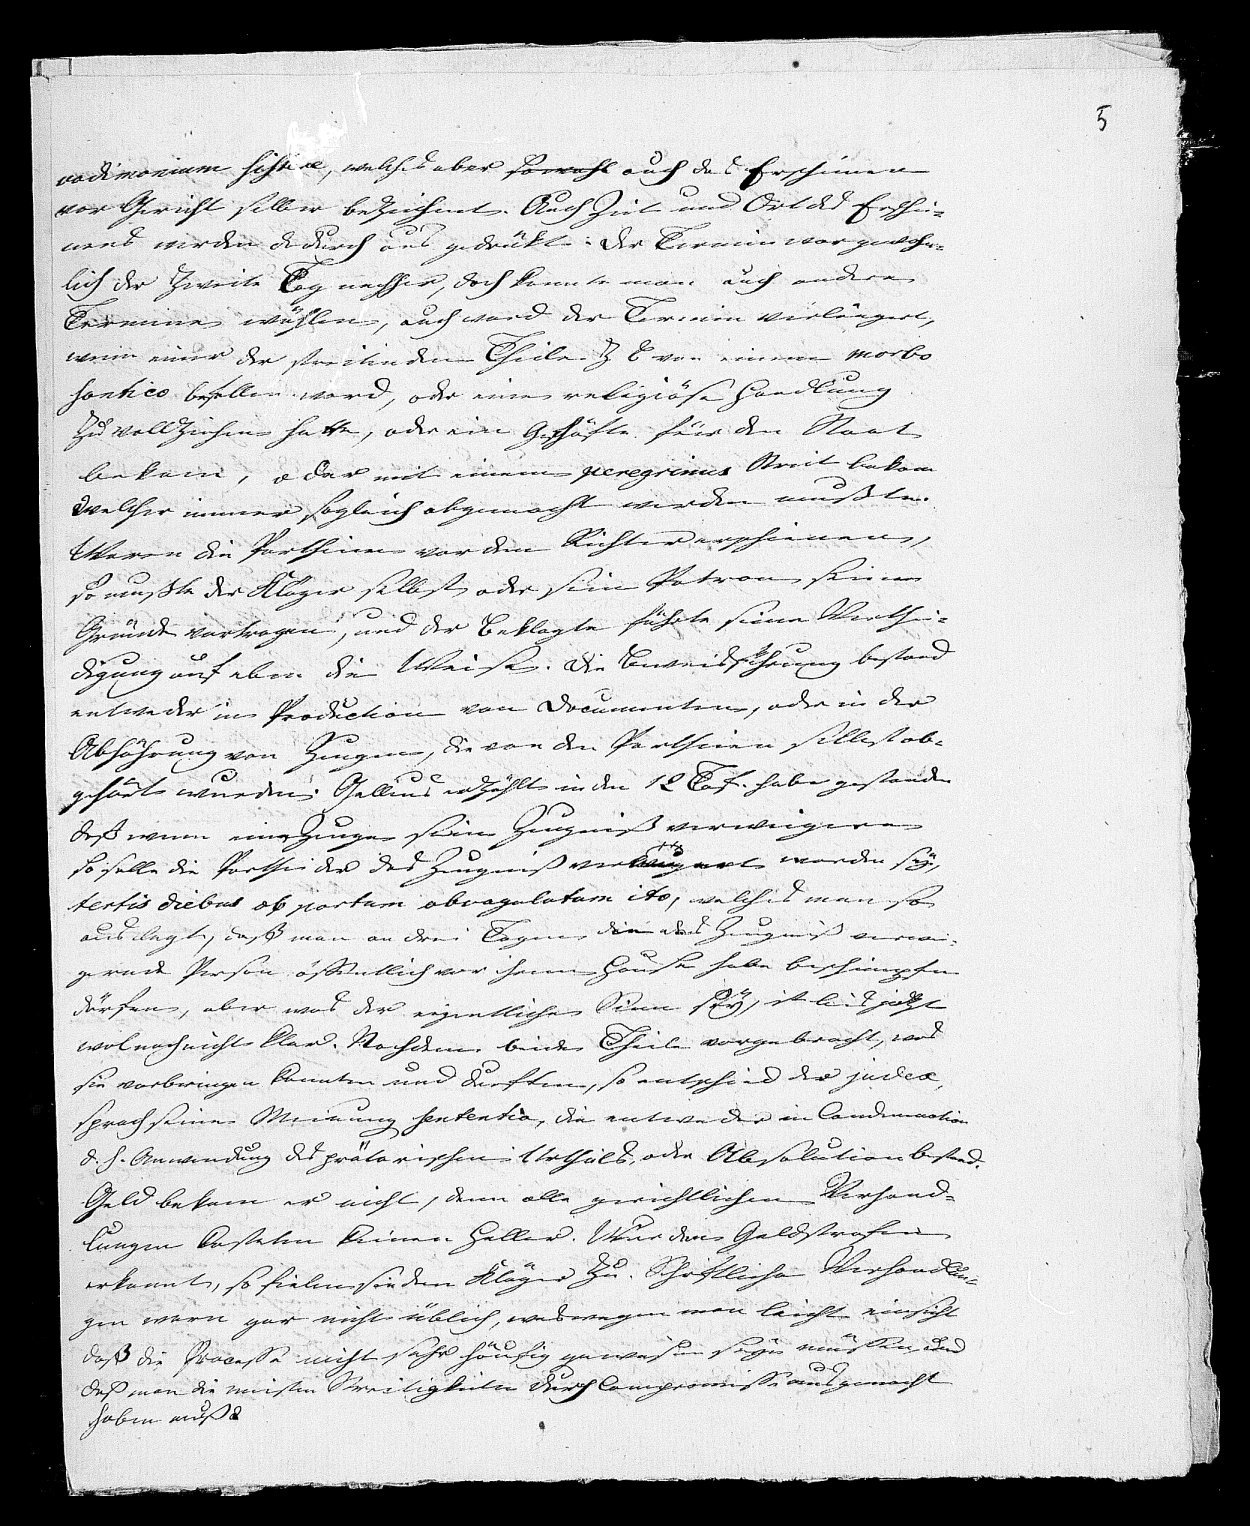 5
vadimonium sistere, welches aber sowohl auch das Erscheinen
vor Gericht selber bezeichnet. Auch Zeit und Ort des Erschei-
nens werden dadurch ausgedrükt. Der Termin war gewöhn-
lich der zweite Tag nachher, doch konnte man auch andere
Termine wählen, auch ward der Termin verlängert,
wenn einer der streitenden Theile z B von einem morbo
sontico befallen ward, oder eine religiöse Handlung
zu vollziehen hatte, oder ein Geschäfte für den Staat
bekam, oder mit einem peregrinus Streit bekam
welcher immer sogleich abgemacht werden mußte.
Waren die Partheien vor dem Richter erschienen,
so mußte der Kläger selbst oder sein Patron seine
Gründe vortragen, und der Beklagte führte seine Verthei-
digung auf eben die Weise. Die Beweisführung bestand
entweder in Production von Documenten, oder in der
Abhöhrung von Zeugen, die von den Partheien selbst ab-
gehört wurden. Gellius erzählt in den 12 Taf. habe gestanden
daß wenn ein Zeuge sein Zeugniß verweigere
so solle die Parthei der das Zeugniß verweigert worden sey,
tertis diebus ob portum obvagulatum ito, welches man so
auslegt, daß man an drei Tagen die das Zeugniß verwei-
gernde Person öffentlich vor ihrem Hause habe beschimpfen
dörfen, aber was der eigentliche Sinn sey, ist bis jetzt
wol noch nicht klar. Nachdem beide Theile vorgebracht, was
sie vorbringen konnten und durften, so entschied der judex,
sprach seine Meinung sententia, die entweder in Condemnation
d. h. Anwendung des prätorischen Urtheils, oder Absolution bestand.
Geld bekam er nicht, denn alle gerichtlichen Verhand-
lungen kosteten keinen Heller. Wurden Geldstrafen
erkannt, so fielen sie dem Kläger zu. Schriftliche Verhandlun-
gen waren gar nicht üblich, weswegen man leicht einsieht
daß die Processe nicht sehr häufig gewesen seyn müssen und
daß man die meisten Streitigkeiten durch Compromisse ausgemacht
haben muß